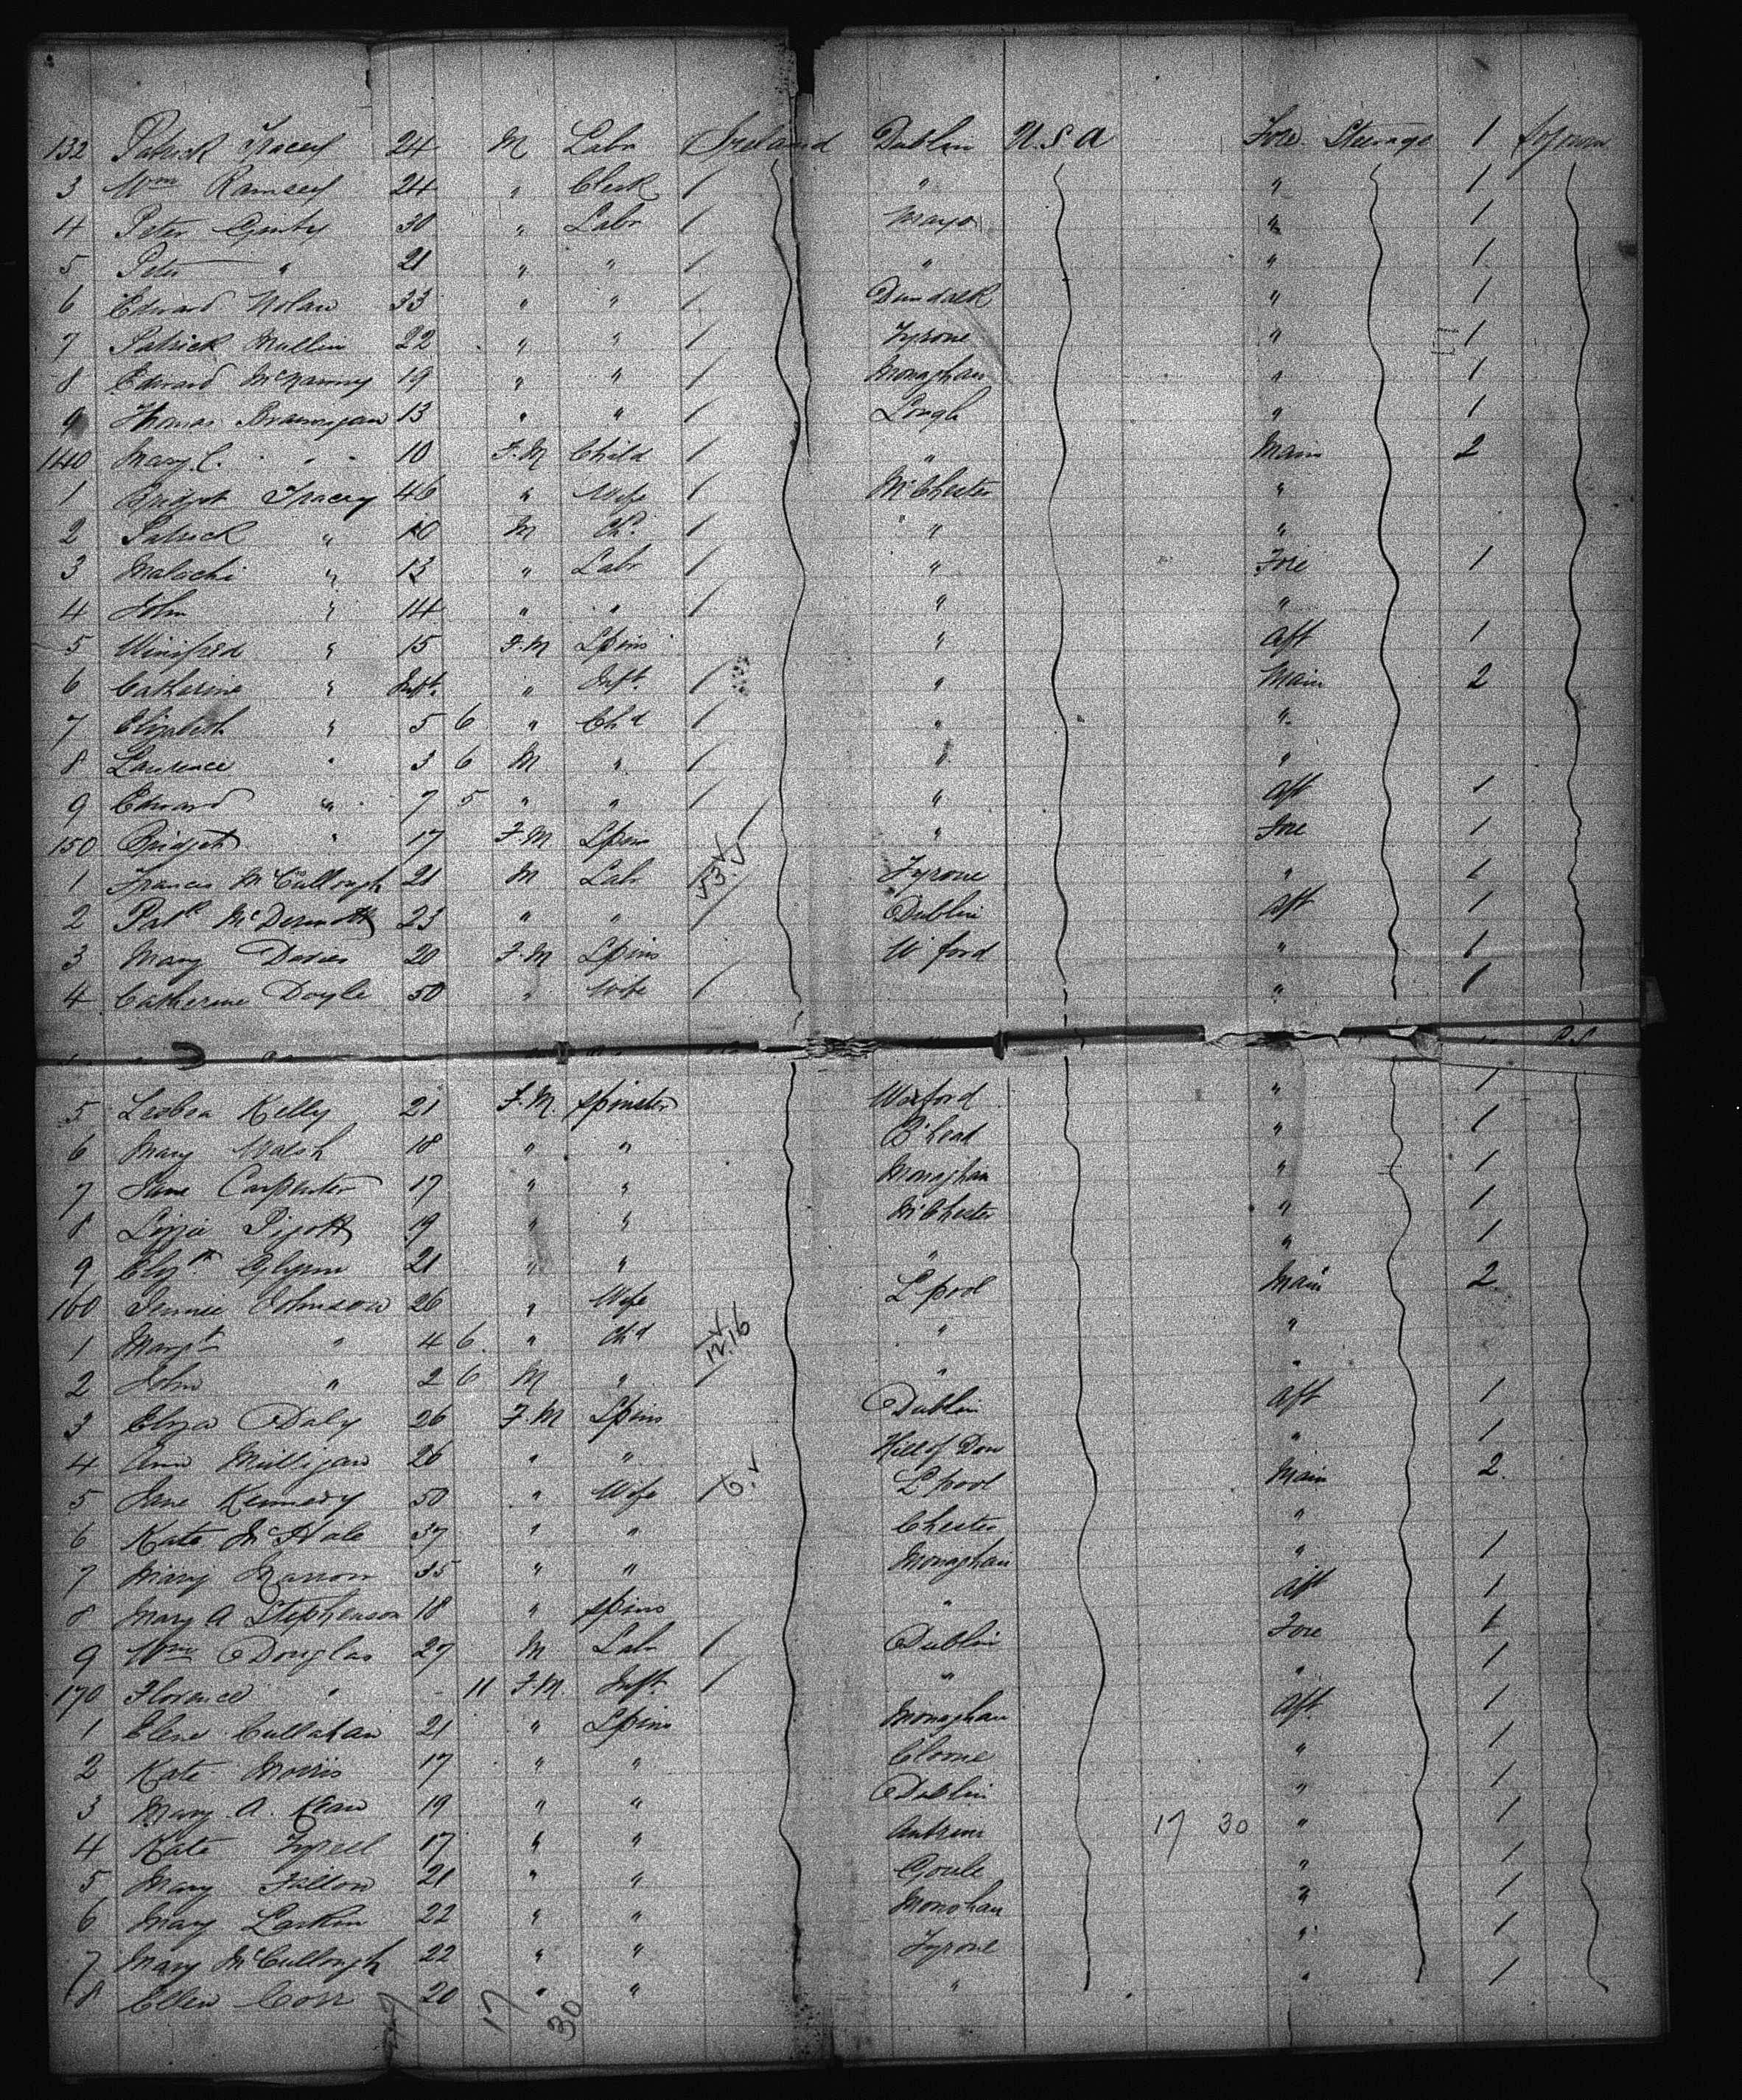 132 Patrick Tracey 24 M Labr Ireland Dublin U.S.A Fore Steerage 1
3 Wm Ramsey 24 " Clerk / " " 1
4 Peter Ginty 30 " Labr / Mayo " 1
5 Peter " 21 " " / " " 1
6 Edward Nolan 33 " " / Dundalk " 1
7 Patrick Mullin 22 " " / Tyrone " 1
8 Edward 19 " " / Monaghan " 1
9 Thomas Brannigan 13 " " / " 1
140 Mary C. " 10 F.M Child / " Main 2
1 Bridget Tracey 46 " Wife / McChester "
2 Patrick " 10 M Chd / " "
3 Malachi " 13 " Labr / " Fore 1
4 John " 14 " " / " "
5 Winifred " 15 F.M Spins " Aft 1
6 Catherine " Inft. " Inft. / " Main 2
7 Elizabeth " 5 6 " Chd / " "
8 Laurence " 3 6 M " / " "
9 Edward " 7 5 " " / " Aft 1
150 Bridget " 17 F.M Spins " Fore 1
1 Francis McCullough 21 M Labr / Tyrone " 1
2 Patk McDermott 23 " " / Dublin Aft 1
3 Mary 20 F.M Spins W'ford " 1
4 Catherine Doyle 50 " Wife / " 1
5 Kelly 21 F.M. Spinster Wexford " 1
6 Mary Walsh 18 " " B'head " 1
7 Jane Carpenter 17 " " Monaghan " 1
8 Lizzie Pigott 19 " " McChester " 1
9 Elizth Glynn 21 " " " " 1
160 Jennie Johnson 26 " Wife L'pool Main 2
1 Margt " 4 6 " Chd / 12.16 " "
2 John " 2 6 M " / " "
3 Eliza Daly 26 F.M Spins Dublin Aft 1
4 Ann Milligan 26 " " Hill of Down " 1
5 Jane Kennedy 50 " Wife / 6 L'pool Main 2
6 Kate McHale 37 " " Chester "
7 Mary 35 " " Monaghan " 1
8 Mary A Stephenson 18 " Spins " Aft 1
9 Wm Douglas 27 M Labr / Dublin Fore 1
170 Florence " - 11 F.M. Inft. / " " 1
1 Elene Cullahan 21 " Spins Monaghan Aft. 1
2 Kate Morris 17 " " Cloone " 1
3 Mary A. Kean 19 " " Dublin " 1
4 Kate Tyrell 17 " " Antrim 17 30 " 1
5 Mary Fallon 21 " " Goule " 1
6 Mary Larkin 22 " " Monohan " 1
7 Mary McCullough 22 " " Tyrone " 1
8 Ellen Corr 20 " " " " 1
17 30